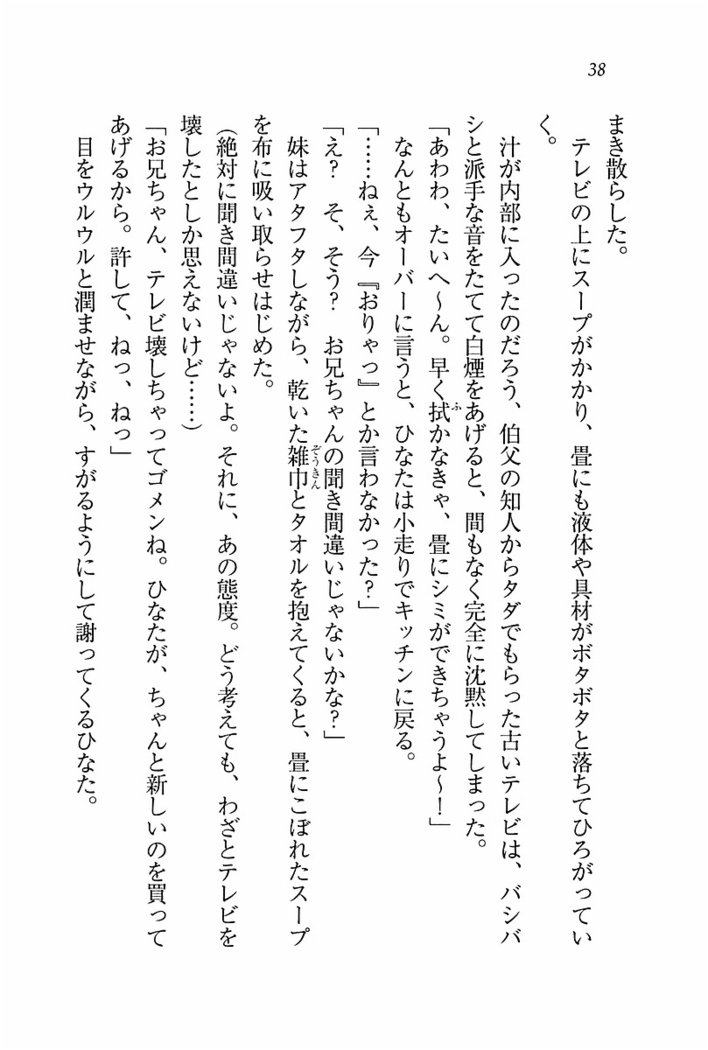 38
まき散らした。
テレビの上にスープがかかり、畳にも液体や具材がボタボタと落ちてひろがってい
く。
汁が内部に入ったのだろう、伯父の知人からタダでもらった古いテレビは、バシバ
シと派手な音をたてて白煙をあげると、間もなく完全に沈黙してしまった。
「あわわ、たいへ～ん。早く拭かなきゃ、畳にシミができちゃうよ～！」
なんともオーバーに言うと、ひなたは小走りでキッチンに戻る。
「……ねぇ、今『おりゃっ』とか言わなかった？」
「え？　そ、そう？　お兄ちゃんの聞き間違いじゃないかな？」
妹はアタフタしながら、乾いた雑巾とタオルを抱えてくると、畳にこぼれたスープ
を布に吸い取らせはじめた。
（絶対に聞き間違いじゃないよ。それに、あの態度。どう考えても、わざとテレビを
壊したとしか思えないけど……）
「お兄ちゃん、テレビ壊しちゃってゴメンね。ひなたが、ちゃんと新しいのを買って
あげるから。許して、ねっ、ねっ」
目をウルウルと潤ませながら、すがるようにして謝ってくるひなた。